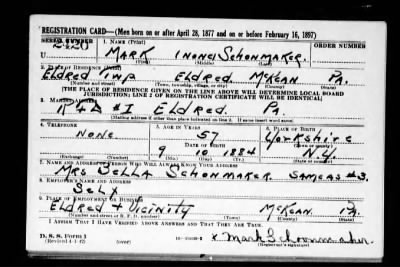 REGISTRATION CARD—(Men born on or after April 28, 1877 and on or before February 16, 1897)
SERIAL NUMBER 1. NAME (Print) ORDER NUMBER
MARK (NONE) SCHONMAKER.
(First) (Middle) (Last)
2. PLACE OF RESIDENCE (Print)
ELDRED TWP ELDRED McKEAN PA.
(Number and street) (Town, township, village, or city) (County) (State)
[THE PLACE OF RESIDENCE GIVEN ON THE LINE ABOVE WILL DETERMINE LOCAL BOARD
JURISDICTION; LINE 2 OF REGISTRATION CERTIFICATE WILL BE IDENTICAL]
3. MAILING ADDRESS
R#D #1 ELDRED. PA.
[Mailing address if other than place indicated on line 2. If same insert word same]
4. TELEPHONE 5. AGE IN YEARS 6. PLACE OF BIRTH
NONE. 57 YORKSHIRE
DATE OF BIRTH (Town or county)
9 10 1884 N.Y.
(Exchange) (Number) (Mo.) (Day) (Yr.) (State or country)
7. NAME AND ADDRESS OF PERSON WHO WILL ALWAYS KNOW YOUR ADDRESS
MRS BELLA SCHONMAKER SAME AS #3.
8. EMPLOYER'S NAME AND ADDRESS
SELF
9. PLACE OF EMPLOYMENT OR BUSINESS
ELDRED + VICINITY McKEAN. PA.
(Number and street or R. F. D. number) (Town) (County) (State)
I AFFIRM THAT I HAVE VERIFIED ABOVE ANSWERS AND THAT THEY ARE TRUE.
D. S. S. Form 1
(Revised 4-1-42) (over) x Mark Schoonmaker.
(Registrant's signature)